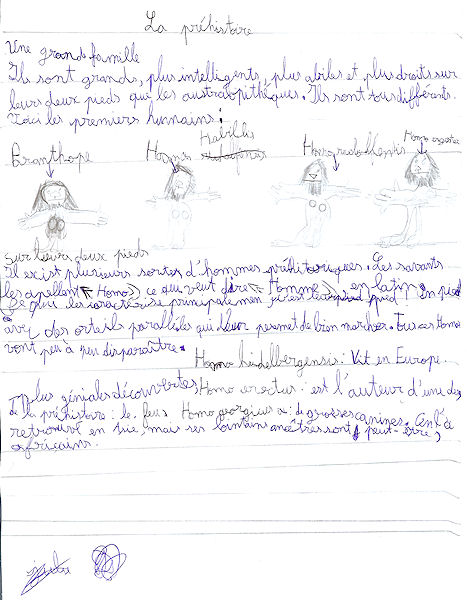 La préhistoire
Une grande famille
Ils sont grands, plus intelligents, plus abiles et plus droits sur
leurs deux pieds que les australopithèques. Ils sont tous différents.
Voici les premiers humains :
Habilis
Homo
Homo ergaster
Sur leurs deux pieds
Il exist plusieurs sortes d'hommes préhistoriques. Les savants
les apellent « Homo » ce qui veut dire « Homme » en latin.
Ce qui les caractérise principalemen c'est le pied
avec des orteils parallèles qui leur permet de bien marcher. Tous ces Homo
vont peu à peu disparaître.
Homo heidelbergensis : Vit en Europe.
plus géniales découvertes Homo erectus : est l'auteur d'une des
de la préhistoire : le feu Homo georgicus a : de grosses canines. On l'a
retrouvé en sie, mais ses lointains ancêtres sont peut-être
africains.